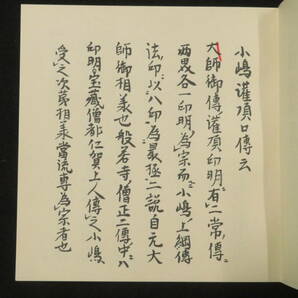 小嶋灌頂口傳云
大師御傳灌頂印明有二常傳
両界各一印明為宗而小嶋上綱傳
法印以八印為最極二説自元大
師御相羕也般若寺僧正二傳中ハ
印明宝藏僧都仁賀上人傳之小嶋
受之次第相羕當流尊為宗者也